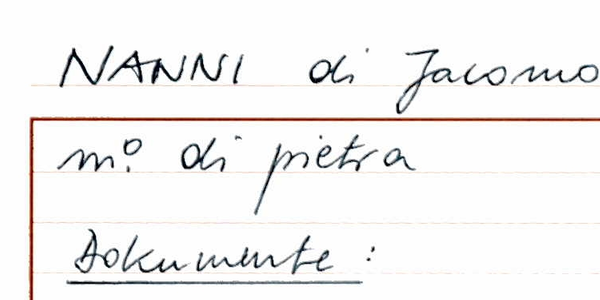 NANNI di Jacomo
mº. di pietra
Dokumente: